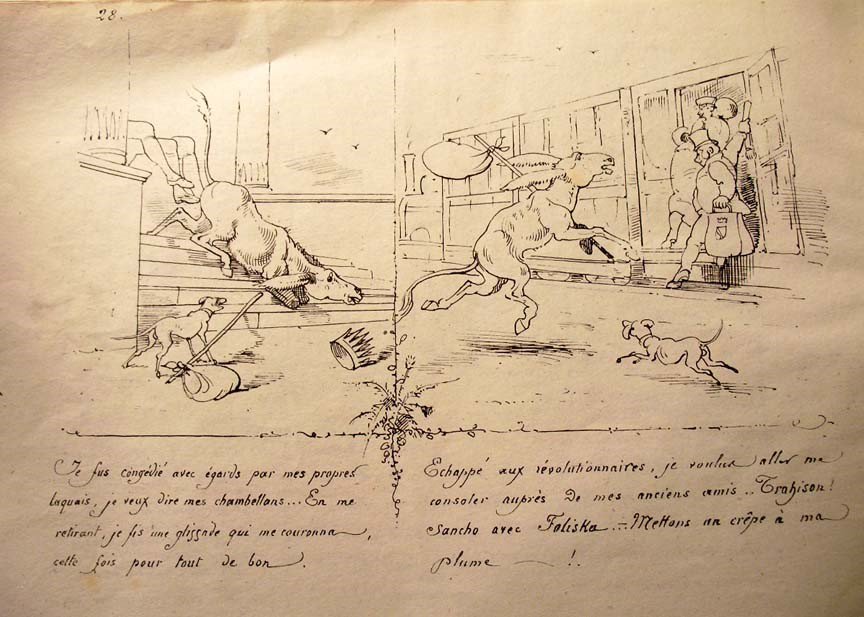 28.
Je fus congédié avec égards par mes propres
laquais, je veux dire mes chambellans... En me
retirant, je fis une glissade qui me couronna,
cette fois pour tout de bon.
Echappé aux révolutionnaires, je voulus aller me
consoler auprès de mes anciens amis... Trahison!
Sancho avec Foliska.— Mettons un crêpe à ma
plume — !.